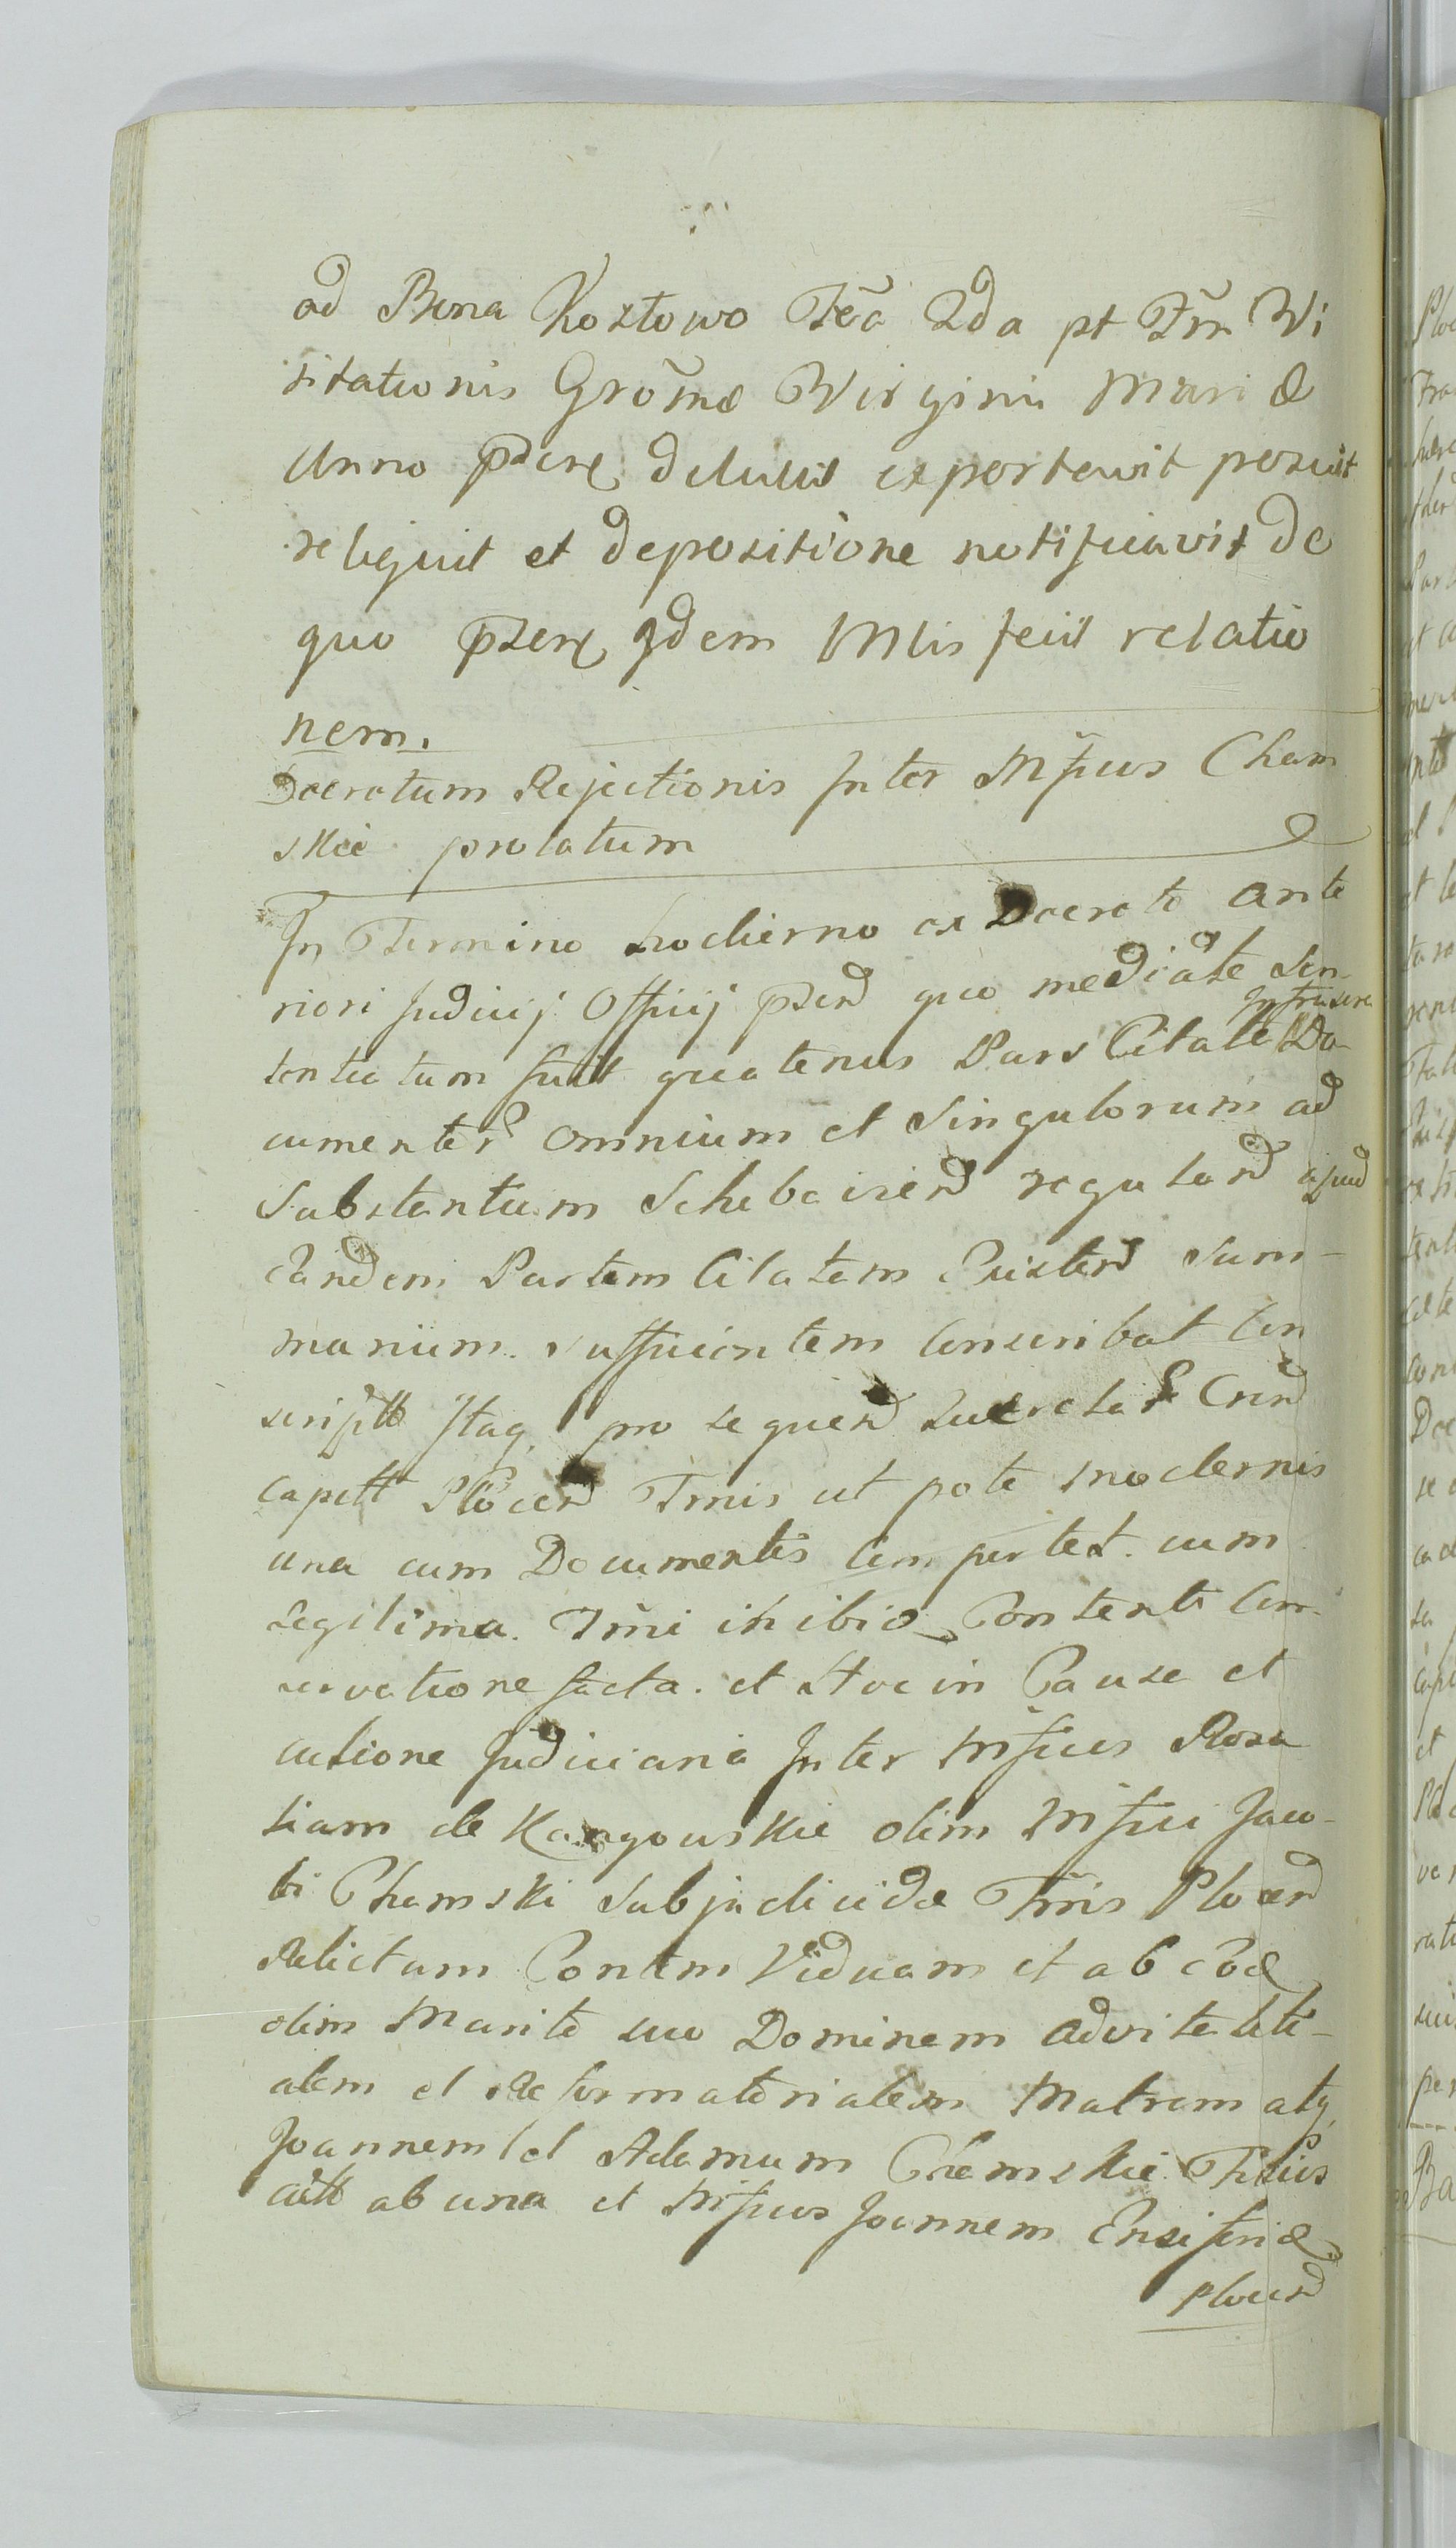 ad Bona Koztowo Fẽa 2da pt Fm̃ Vi
sitationis Grõmæ Virginis Mariæ
Anno pdeñ detulit exportavit posuit
reliquit et depositione notificavit de
quo pñseñ Idem Mlis fecit relatio
nem.
Decretum Rejectionis Inter Mfcos Cham
skie prolatum
In Termino hodierno ex Decreto Ante
riori Judicij Officij pñsen quo mediate Sen-
tentiatum fuit quatenus Pars Citata Infrascrn Do-
cumentor omnium et Singulorum ad
Substantiam reguland apud
Eandem Partem Citatam Existen Sum-
marium sufficientem Conscribat Con
script Itaq pro sequen Secreta
Capitt Plocen Trmis ut pote modernis
una cum Documentis Comportet. cum
legitima. Trmi inibi Content Con-
servatione facta. et Hoc in Causa et
actione Judiciaria Inter Mfcos Rosa
liam de olim Mfici Jaco-
bi Chamski Subjudicidæ Trris Plocen
Relictam Contem Viduam et ab Eod
olim Marito suo Dominam advitaliti-
alem et Reformatorialem Matrem atq
Joannem et Adamum Chamskie Filios
actt ab una et Mfcos Joannem Ensiferidæ
Plocen